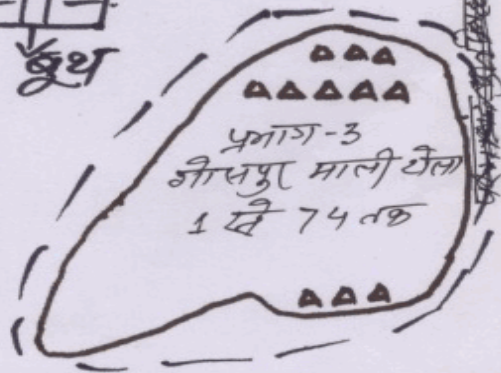 बूथ
प्रभाग-3
गोसपुर माली टोला
1 से 74 तक